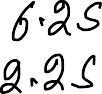 6.25
2.25